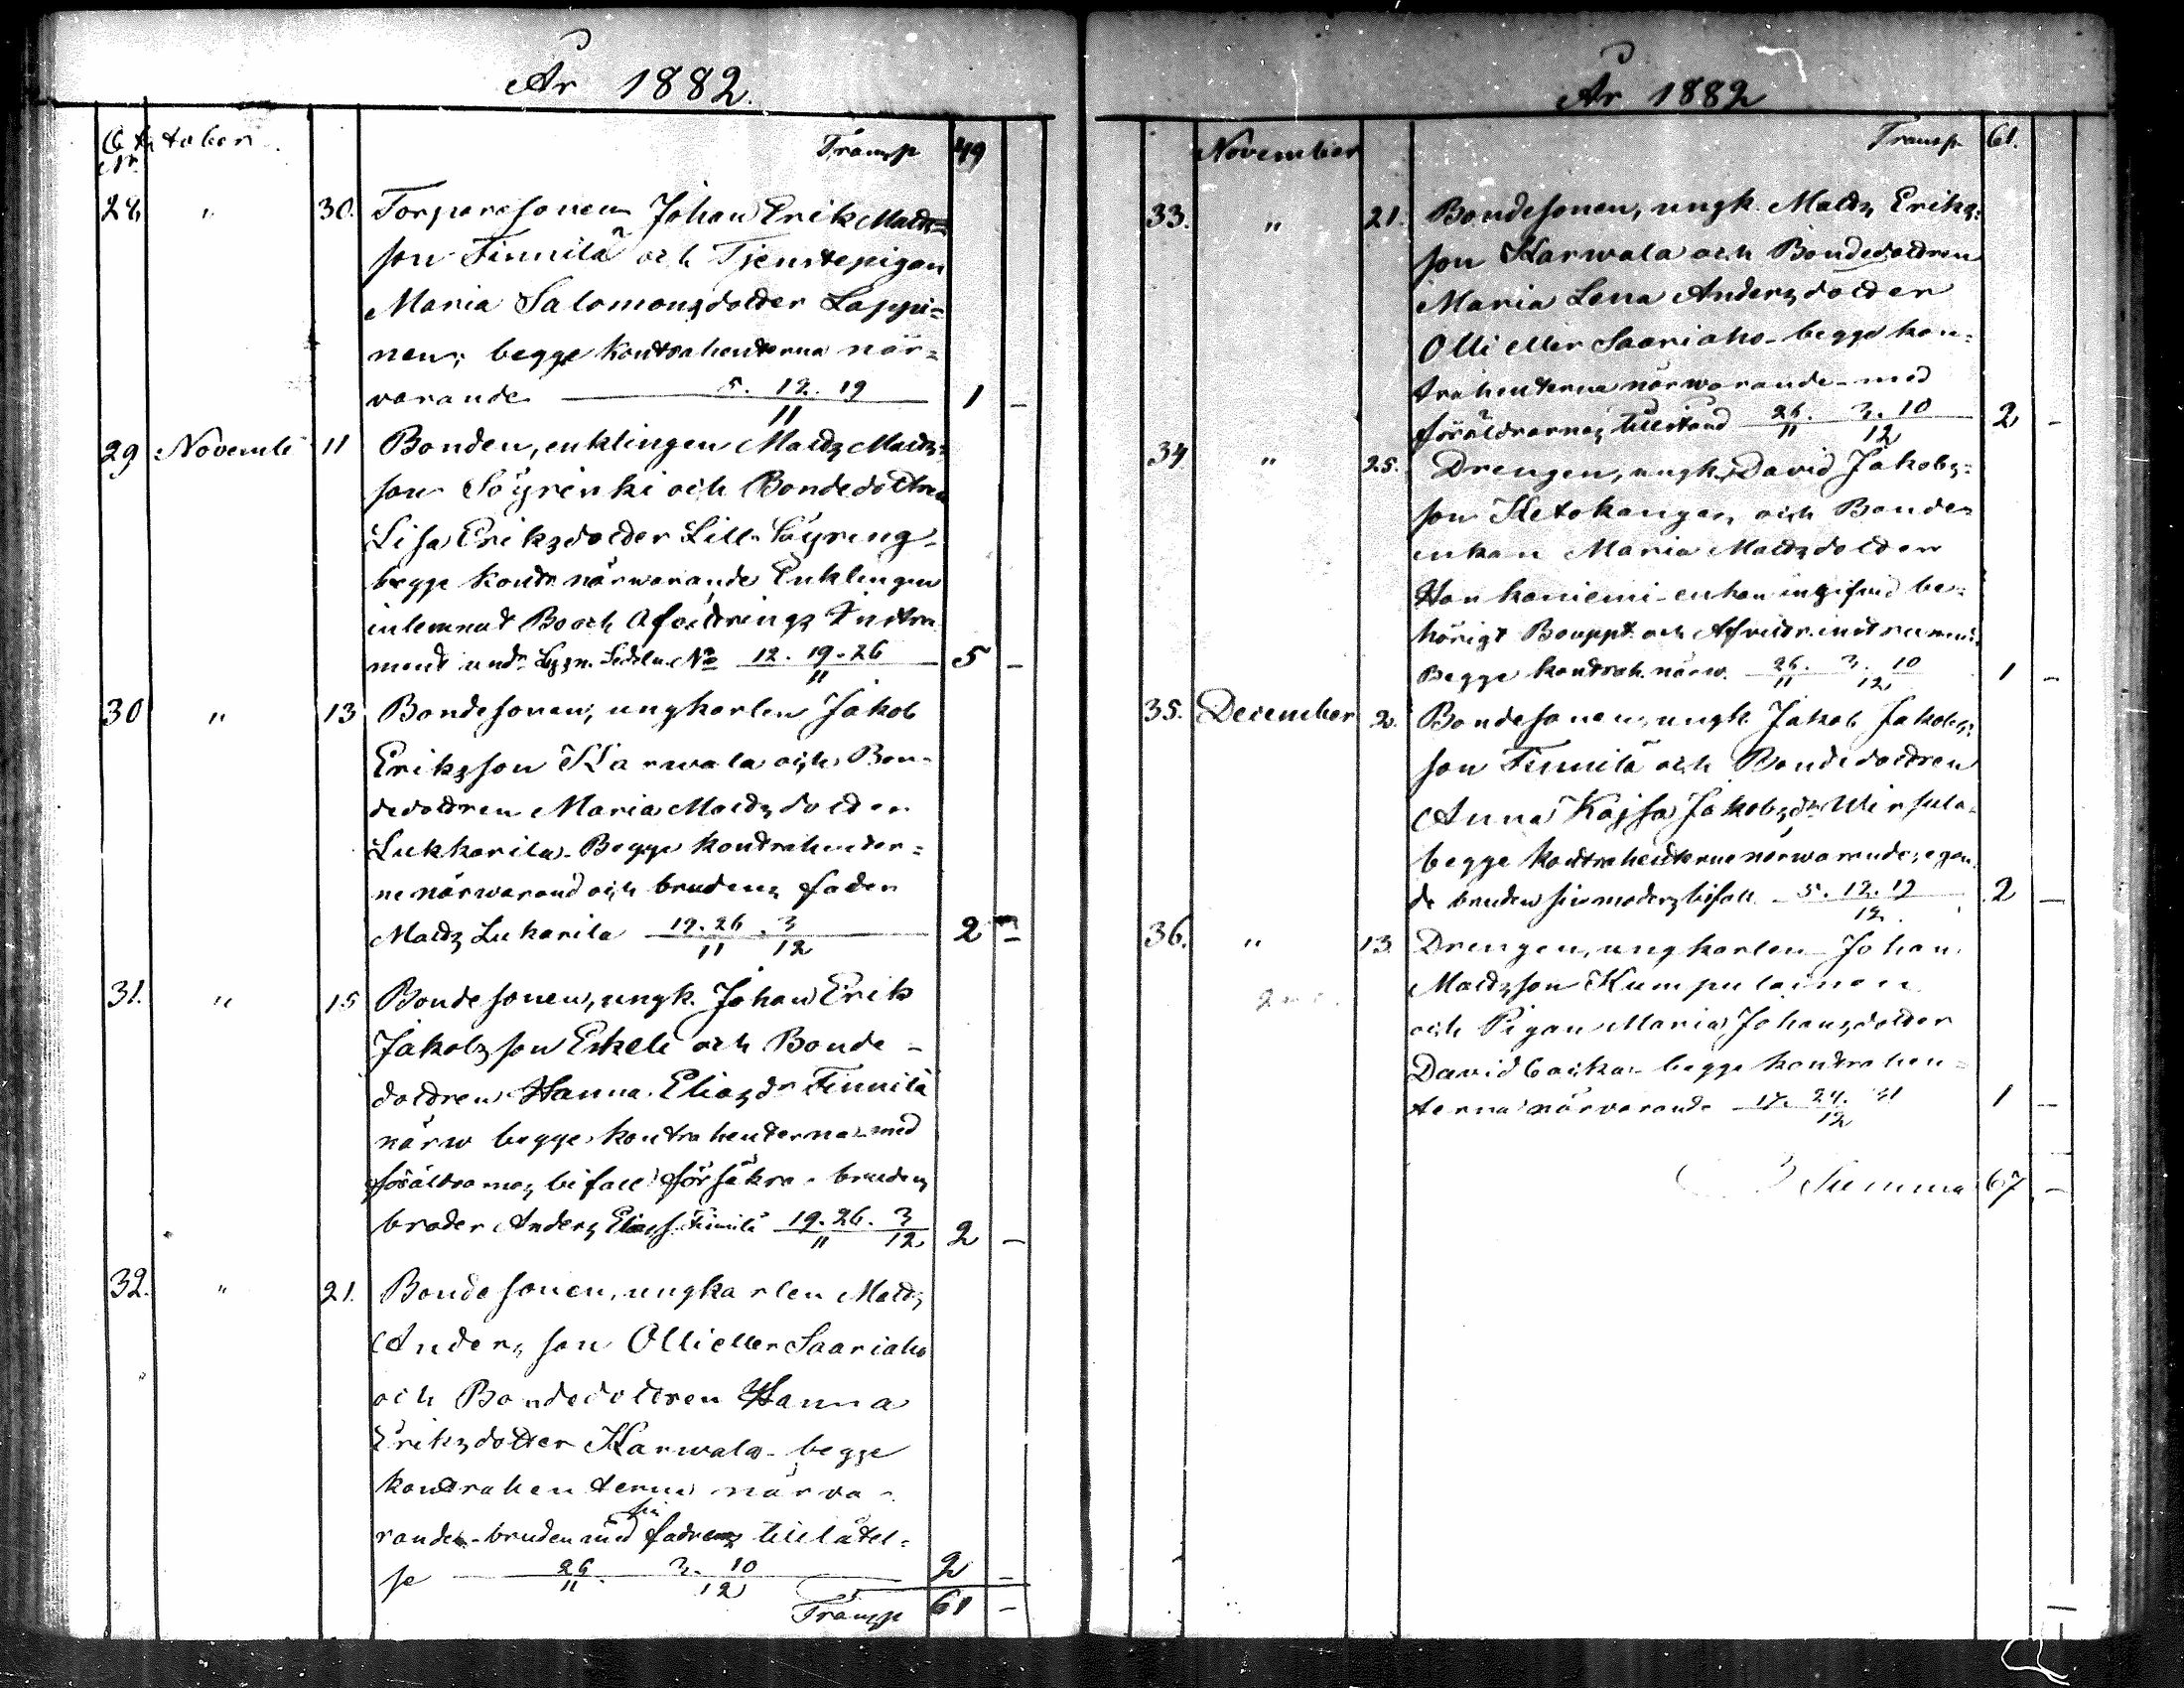 År 1882.
October. Transp 49
No
28, " 30. Torparesonen Johan Erik Matts=
son Finnilä och Tjenstepigan
Maria Salomonsdotter Lappi=
nen; begge kontrahenterna när=
varande 5. 12. 19 1 –
11
29 Novemb 11 Bonden, enklingen Matts Matts=
son Söyrinki och Bondedottren
Lisa Eriksdotter Lill-Söyring-
begge kontr närwarande Enklingen
inlemnat Bo och Afvittrings Instru
ment und. Lysn. Sedeln No 12. 19. 26 5 –
11
30 " 13 Bondesonen, ungkarlen Jakob
Eriksson Karwala och Bon-
dedottren Maria Mattsdotter
Lukkarila. Begge kontrahenter=
ne närwarand och brudens fader
Matts Lukarila 19. 26. 3 2 –
11 12
31. " 15 Bondesonen, ungk. Johan Erik
Jakobsson Eskeli och Bonde-
dottren Hanna Eliasdr Finnilä
närw begge kontrahenterna med
föräldrarnas bifall försäkra brudens
broder Anders Eliass. Finnilä 19. 26. 3 2 –
11 12
32. " 21. Bondesonen, ungkarlen Matts
Andersson Olli eller Saariaho
och Bondedottren Hanna
Eriksdotter Karwala- begge
kontrahenterna närva-
rande- bruden med sin fadrens tillåtel=
se 26. 3. 10 2 –
11 12
Transp 61 –
År 1882
November Transp. 61.
33. " 21. Bondesonen, ungk. Matts Eriks=
son Karwala och Bondedottren
Maria Lena Andersdotter
Olli eller Saariaho- begge kon=
trahenterna närwarande- med
föräldrarnas tillstånd 26. 3. 10 2 –
11 12
34 " 25. Drengen, ungk. David Jakobs=
son Ketokangas, och Bonde
enkan Maria Mattsdotter
Honkaniemi- enkan ingifvid be=
hörigt Bouppt. och Afvittr. instrument.
Begge kontrah. närw. 26. 3. 10 1 –
11 12
35. December 2. Bondesonen, ungk Jakob Jakobs=
son Finnilä och Bondedottren
Anna Kajsa Jakobsdr Wirkula-
begge kontrahenterne närwarande, egan
de bruden sin moders bifall 5. 12. 19 2 –
12
36. " 13. Drengen, ungkarlen Johan
Mattsson Kumpulainen
och Pigan Maria Johansdotter
Davidbacka- begge kontrahen=
terna närvarande 17. 24. 31 1 –
12
Summa 67 –